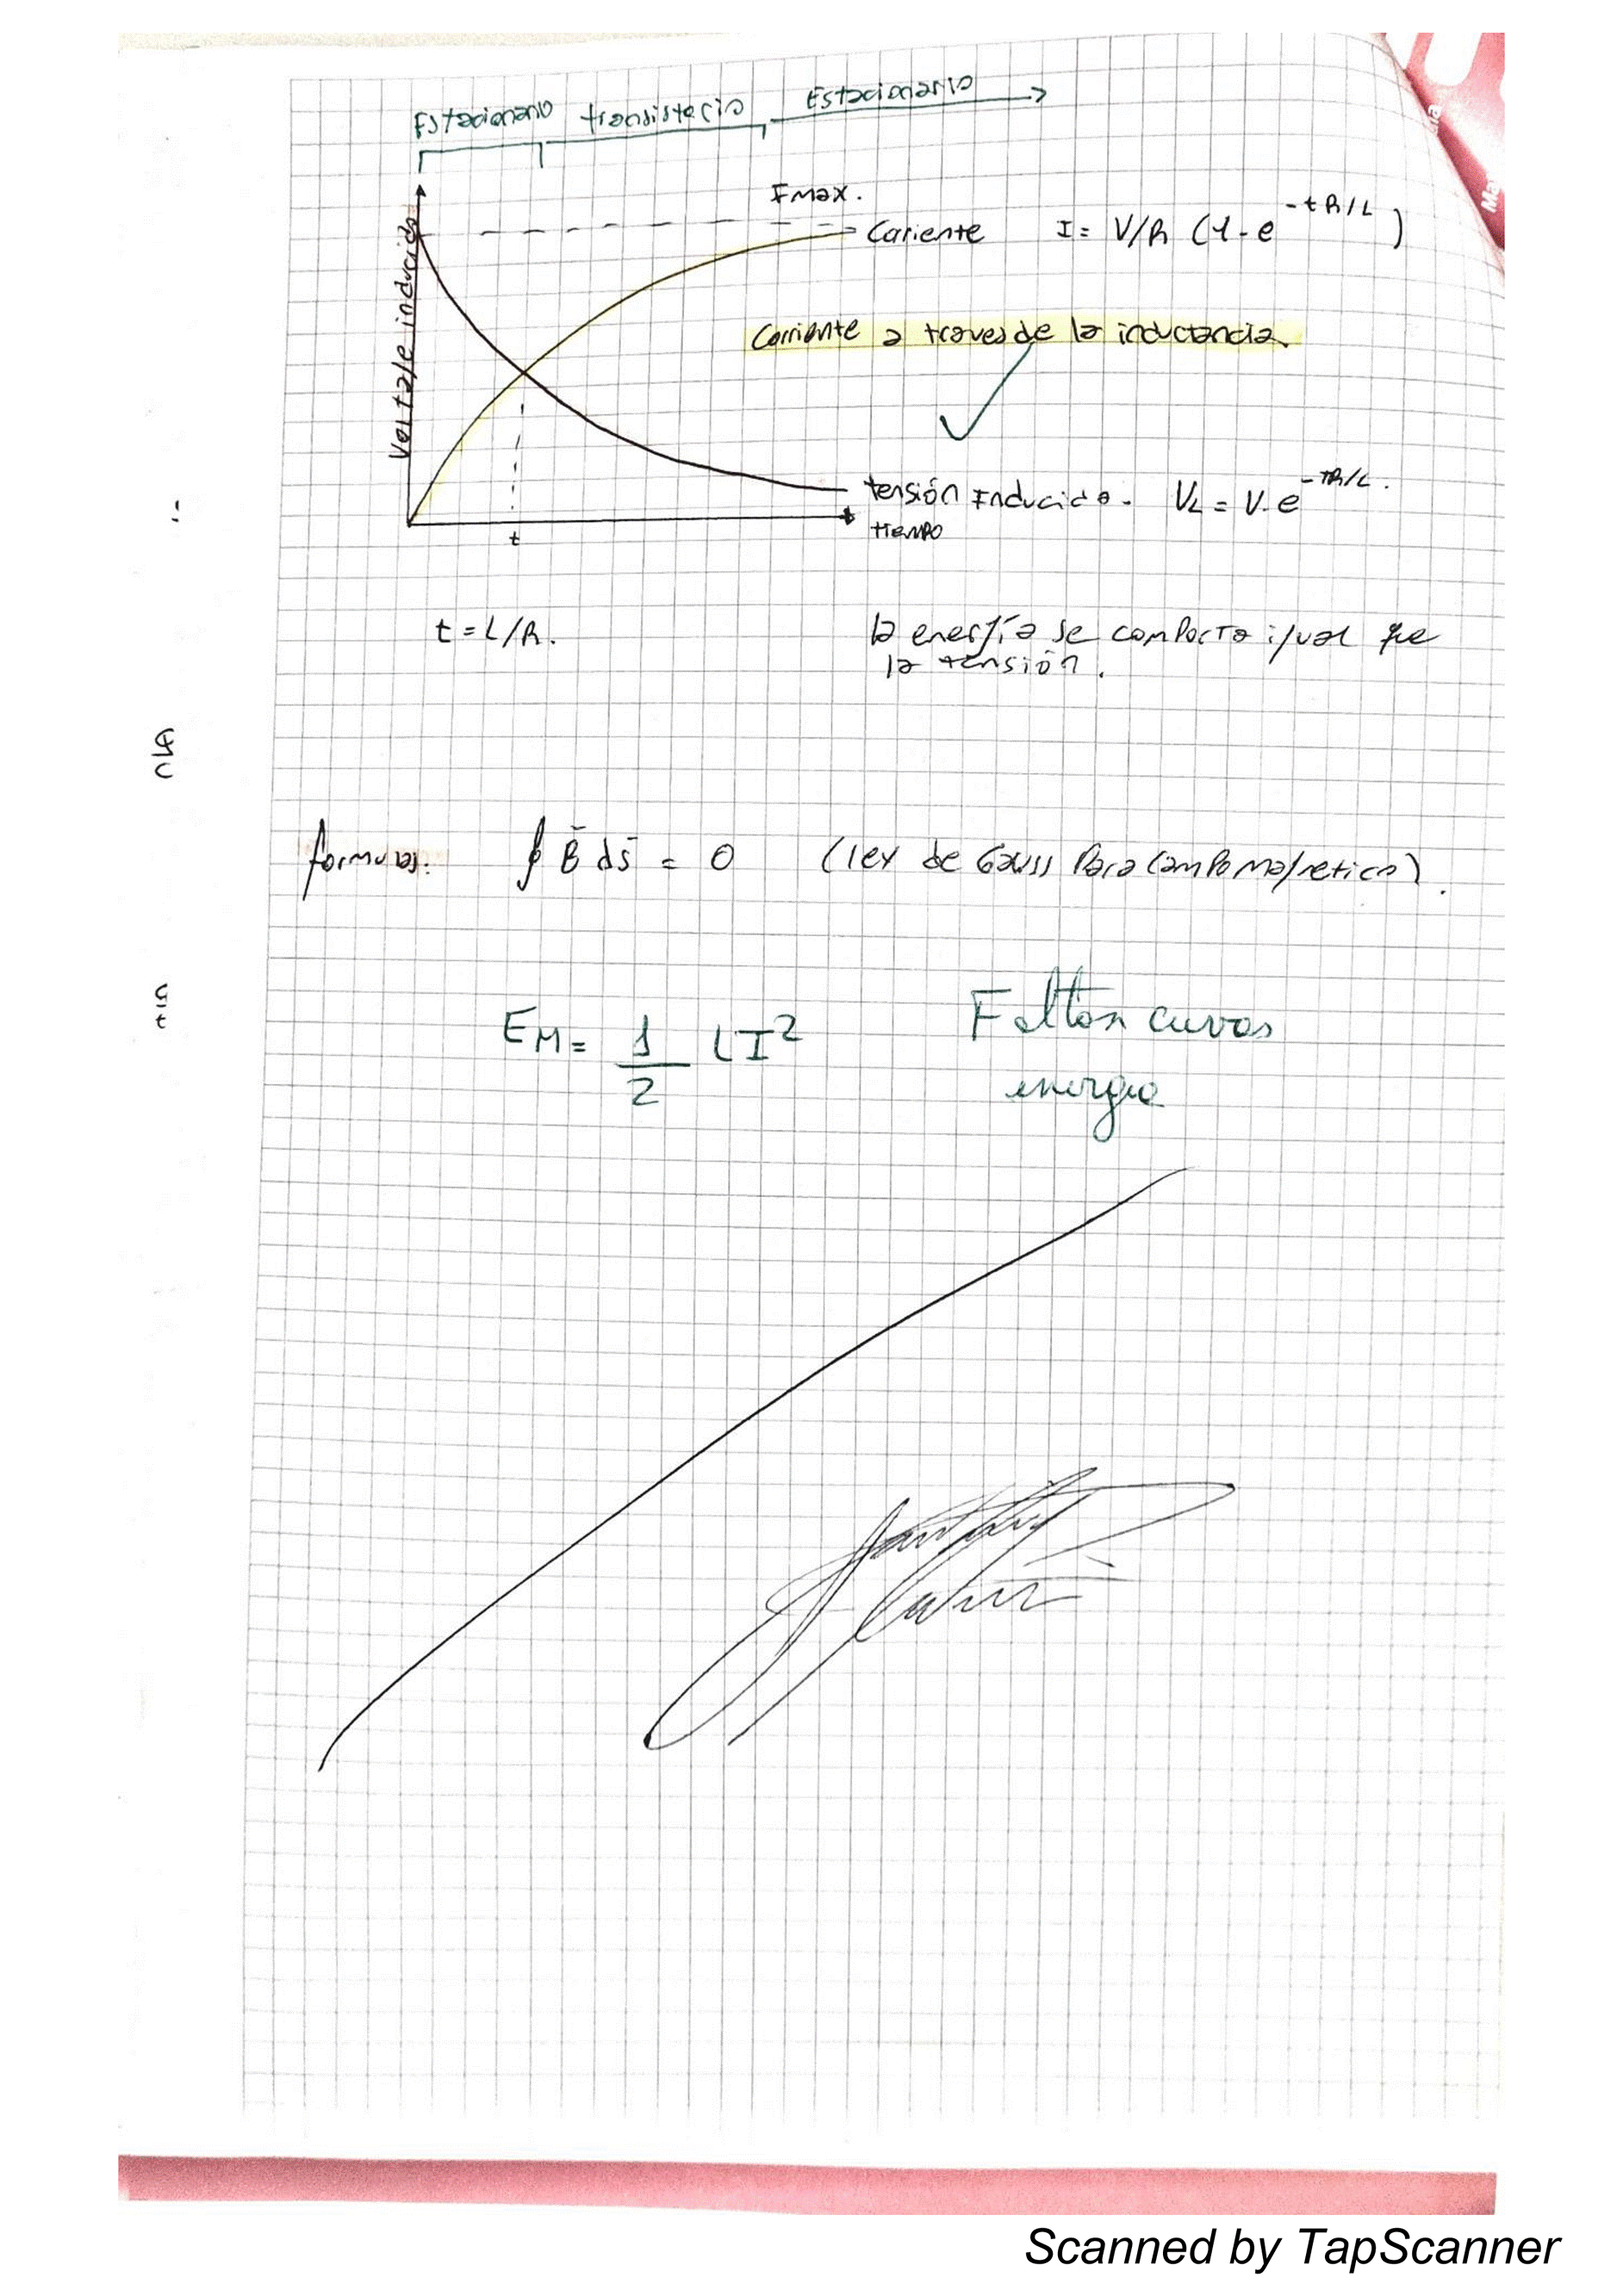 Estacionario transistorio Estacionario
Imax.
Voltaje inducido
Coriente I = V/R (1 - e^-tR/L)
Corriente a traves de la inductancia.
tensión Inducida. VL = V. e^-tR/L.
tiempo
t
t = L/R.
la energía se comporta igual que
la tensión.
formulas: ∮ B ds = 0 (ley de Gauss Para Campo Magnetico).
EM = 1/2 L I²
Faltan curvas
energia
Scanned by TapScanner